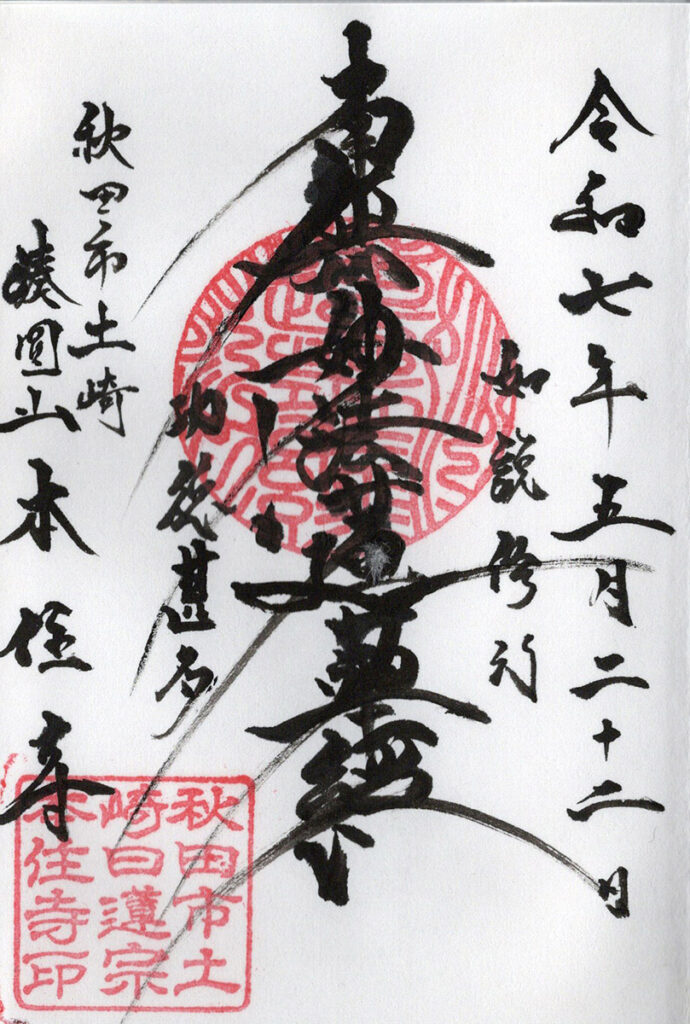 令和七年五月二十二日
如説修行
南無妙法蓮華經
功徳甚多
秋田市土崎
湊圓山本住寺
秋田市土
崎日蓮宗
本住寺印